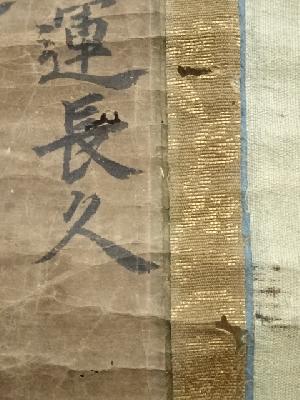 運長久